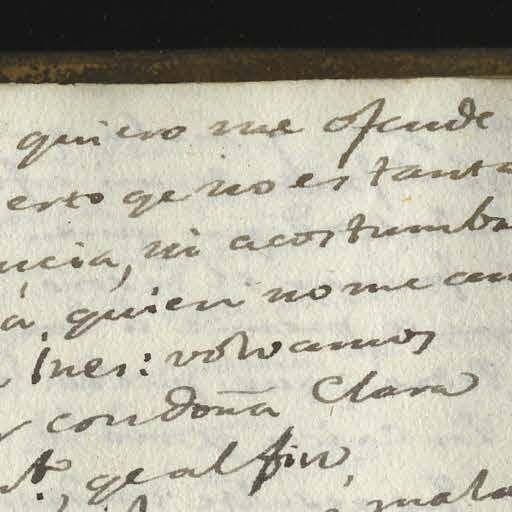 quiero me ofende
erto qe no es tanta
ncia, ni acostumbr
a, quien no me an
Ines: volvamos
con doña Clara
qe al fin,
mala